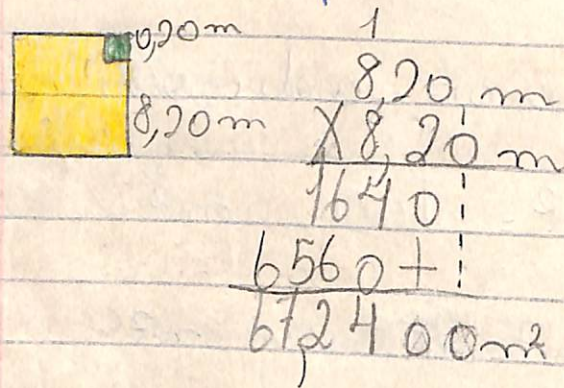 0,20 m
8,20 m
1
8,20 m
X 8,20 m
1640
6560+
67,2400 m²